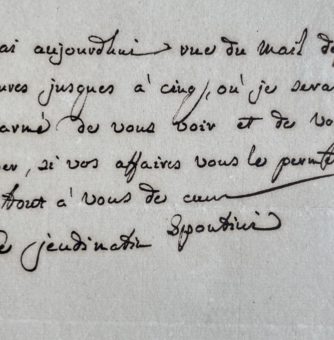 ai aujourdhui rue du Mail d
ures jusques à cinq, où je sera
armé de vous voir et de vo
er, si vos affaires vous le permt
tout à vous de cœur
e jeudi matin Spontini